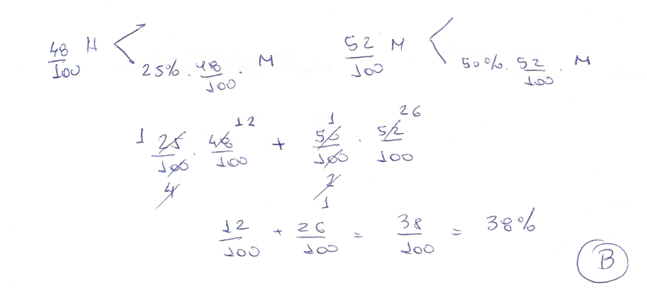 48/100 H < 25% . 48/100 . M
52/100 M < 50% . 52/100 . M
1 25/100 4 . 48/100 12 + 1 50/100 2 1 . 52/100 26
12/100 + 26/100 = 38/100 = 38%
B